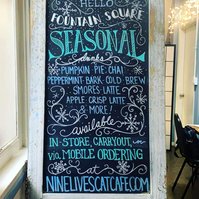 HELLO
FOUNTAIN SQUARE
SEASONAL
drinks
PUMPKIN PIE CHAI
PEPPERMINT BARK COLD BREW
SMORES LATTE
APPLE CRISP LATTE
& MORE!
available
IN-STORE, CARRYOUT, in
via MOBILE ORDERING
at
NINELIVESCATCAFE.COM